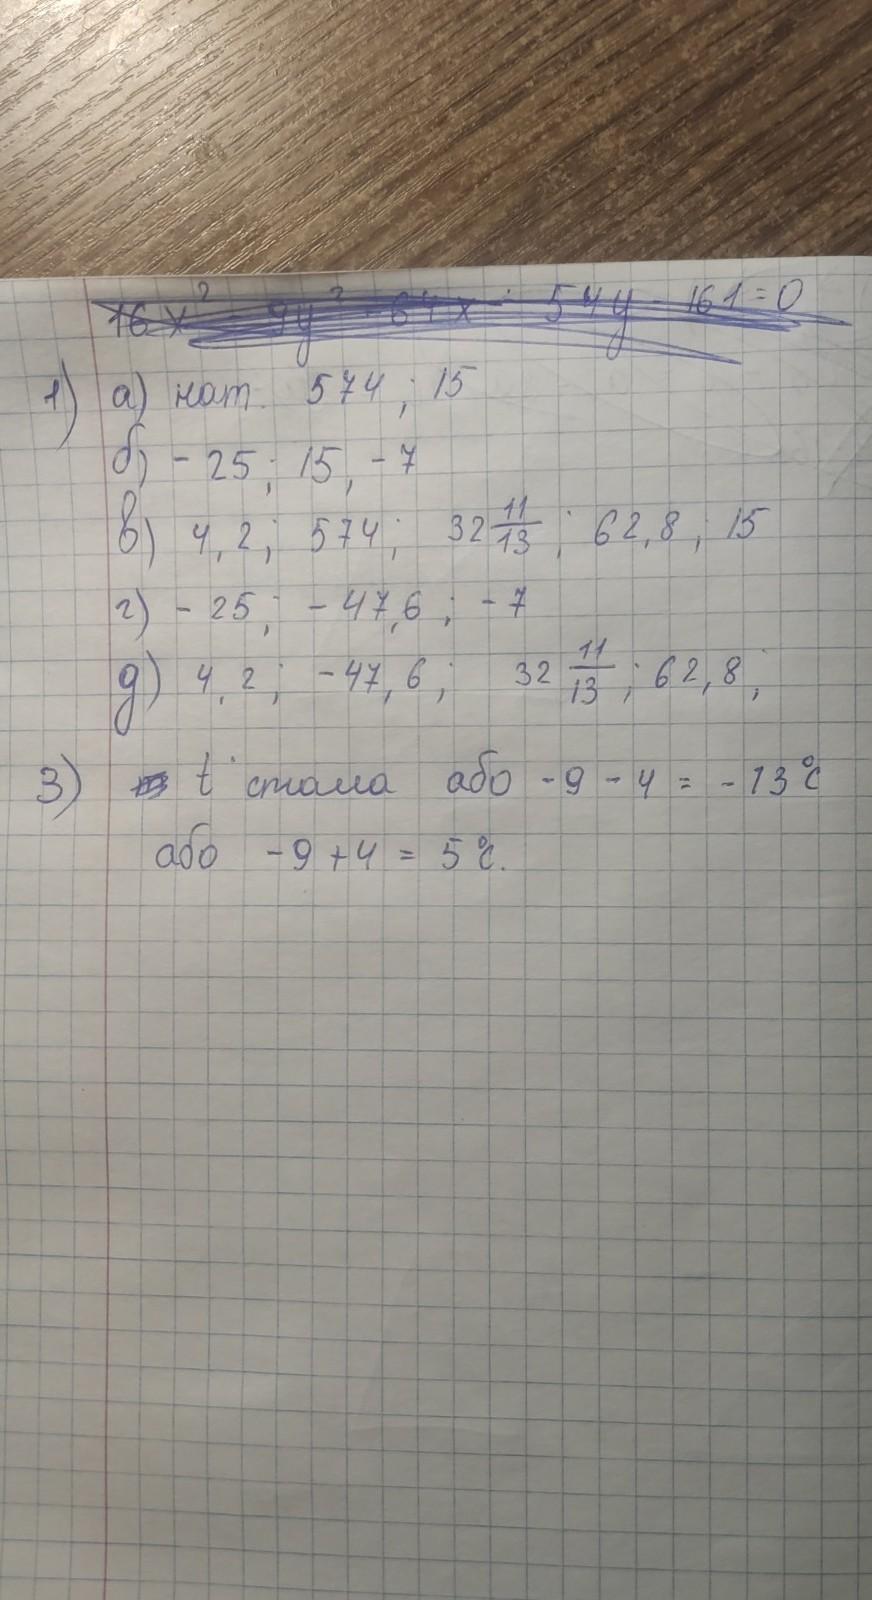 16x² - 9y² - 64x - 54y - 161 = 0
1) а) нат. 574; 15
б) - 25; 15, - 7
в) 4,2; 574; 32 11/13; 62,8; 15
г) - 25; - 47,6; - 7
д) 4,2; - 47,6; 32 11/13; 62,8;
3) t° стала або - 9 - 4 = - 13°C
або - 9 + 4 = 5°C.